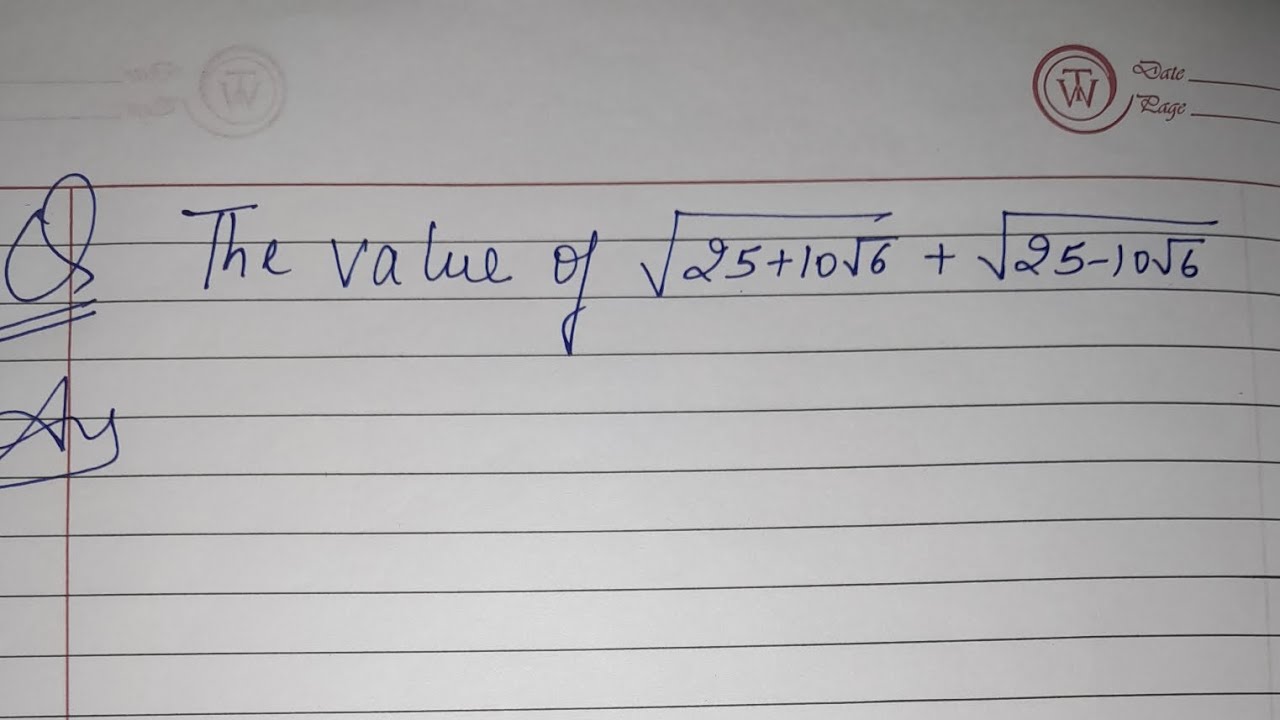 TW Date
Page
Q The value of √25+10√6 + √25-10√6